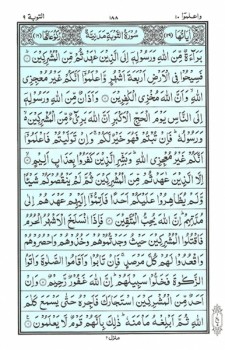 واعلموا ١٠ ١٨٨ التوبة ٩
اٰیَاتُهَا سُوْرَةُ التَّوْبَةِ مَدَنِیَّةٌ رُكُوْعَاتُهَا
بَرَآءَةٌ مِّنَ اللّٰهِ وَرَسُوْلِهٖۤ اِلَی الَّذِیْنَ عٰهَدْتُّمْ مِّنَ الْمُشْرِكِیْنَ ۝
فَسِیْحُوْا فِی الْاَرْضِ اَرْبَعَةَ اَشْهُرٍ وَّاعْلَمُوْۤا اَنَّكُمْ غَیْرُ مُعْجِزِی
اللّٰهِ وَاَنَّ اللّٰهَ مُخْزِی الْكٰفِرِیْنَ ۝ وَاَذَانٌ مِّنَ اللّٰهِ وَرَسُوْلِهٖۤ
اِلَی النَّاسِ یَوْمَ الْحَجِّ الْاَكْبَرِ اَنَّ اللّٰهَ بَرِیْٓءٌ مِّنَ الْمُشْرِكِیْنَ
وَرَسُوْلُهٗ فَاِنْ تُبْتُمْ فَهُوَ خَیْرٌ لَّكُمْ وَاِنْ تَوَلَّیْتُمْ فَاعْلَمُوْۤا
اَنَّكُمْ غَیْرُ مُعْجِزِی اللّٰهِ وَبَشِّرِ الَّذِیْنَ كَفَرُوْا بِعَذَابٍ اَلِیْمٍ ۝
اِلَّا الَّذِیْنَ عٰهَدْتُّمْ مِّنَ الْمُشْرِكِیْنَ ثُمَّ لَمْ یَنْقُصُوْكُمْ شَیْـًٔا
وَّلَمْ یُظَاهِرُوْا عَلَیْكُمْ اَحَدًا فَاَتِمُّوْۤا اِلَیْهِمْ عَهْدَهُمْ اِلٰی
مُدَّتِهِمْ اِنَّ اللّٰهَ یُحِبُّ الْمُتَّقِیْنَ ۝ فَاِذَا انْسَلَخَ الْاَشْهُرُ الْحُرُمُ
فَاقْتُلُوا الْمُشْرِكِیْنَ حَیْثُ وَجَدْتُّمُوْهُمْ وَخُذُوْهُمْ وَاحْصُرُوْهُمْ
وَاقْعُدُوْا لَهُمْ كُلَّ مَرْصَدٍ فَاِنْ تَابُوْا وَاَقَامُوا الصَّلٰوةَ وَاٰتَوُا
الزَّكٰوةَ فَخَلُّوْا سَبِیْلَهُمْ اِنَّ اللّٰهَ غَفُوْرٌ رَّحِیْمٌ ۝ وَاِنْ
اَحَدٌ مِّنَ الْمُشْرِكِیْنَ اسْتَجَارَكَ فَاَجِرْهُ حَتّٰی یَسْمَعَ كَلٰمَ
اللّٰهِ ثُمَّ اَبْلِغْهُ مَاْمَنَهٗ ذٰلِكَ بِاَنَّهُمْ قَوْمٌ لَّا یَعْلَمُوْنَ ۝
منزل ٢